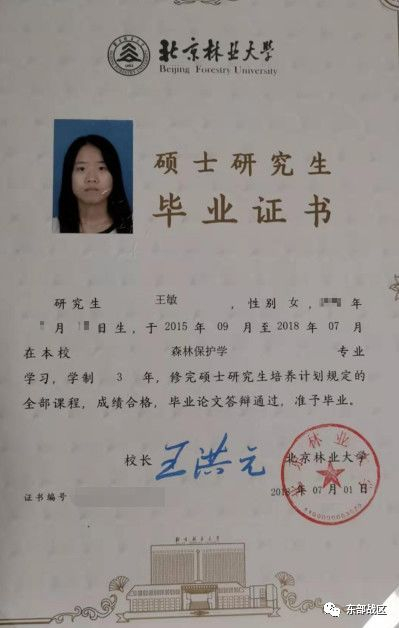 北京林业大学
Beijing Forestry University
硕士研究生
毕业证书
研究生 王敏 ,性别 女, 年
月 日生,于 2015 年 09 月至 2018 年 07 月
在本校 森林保护学 专业
学习,学制 3 年,修完硕士研究生培养计划规定的
全部课程,成绩合格,毕业论文答辩通过,准予毕业。
校长 王洪元 北京林业大学
证书编号 2018 年 07 月 01 日
东部战区